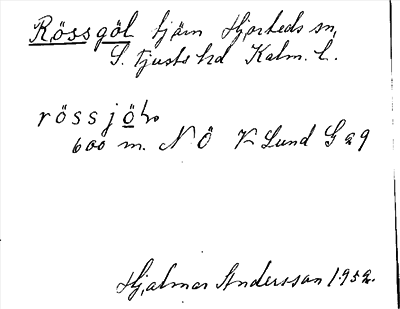 Rössgöl tjärn Hjorteds sn,
S. Tjusts hd Kalm. l.
rössjö
600 m. N Ö V Lund G a 9
Hjalmar Andersson 1952.